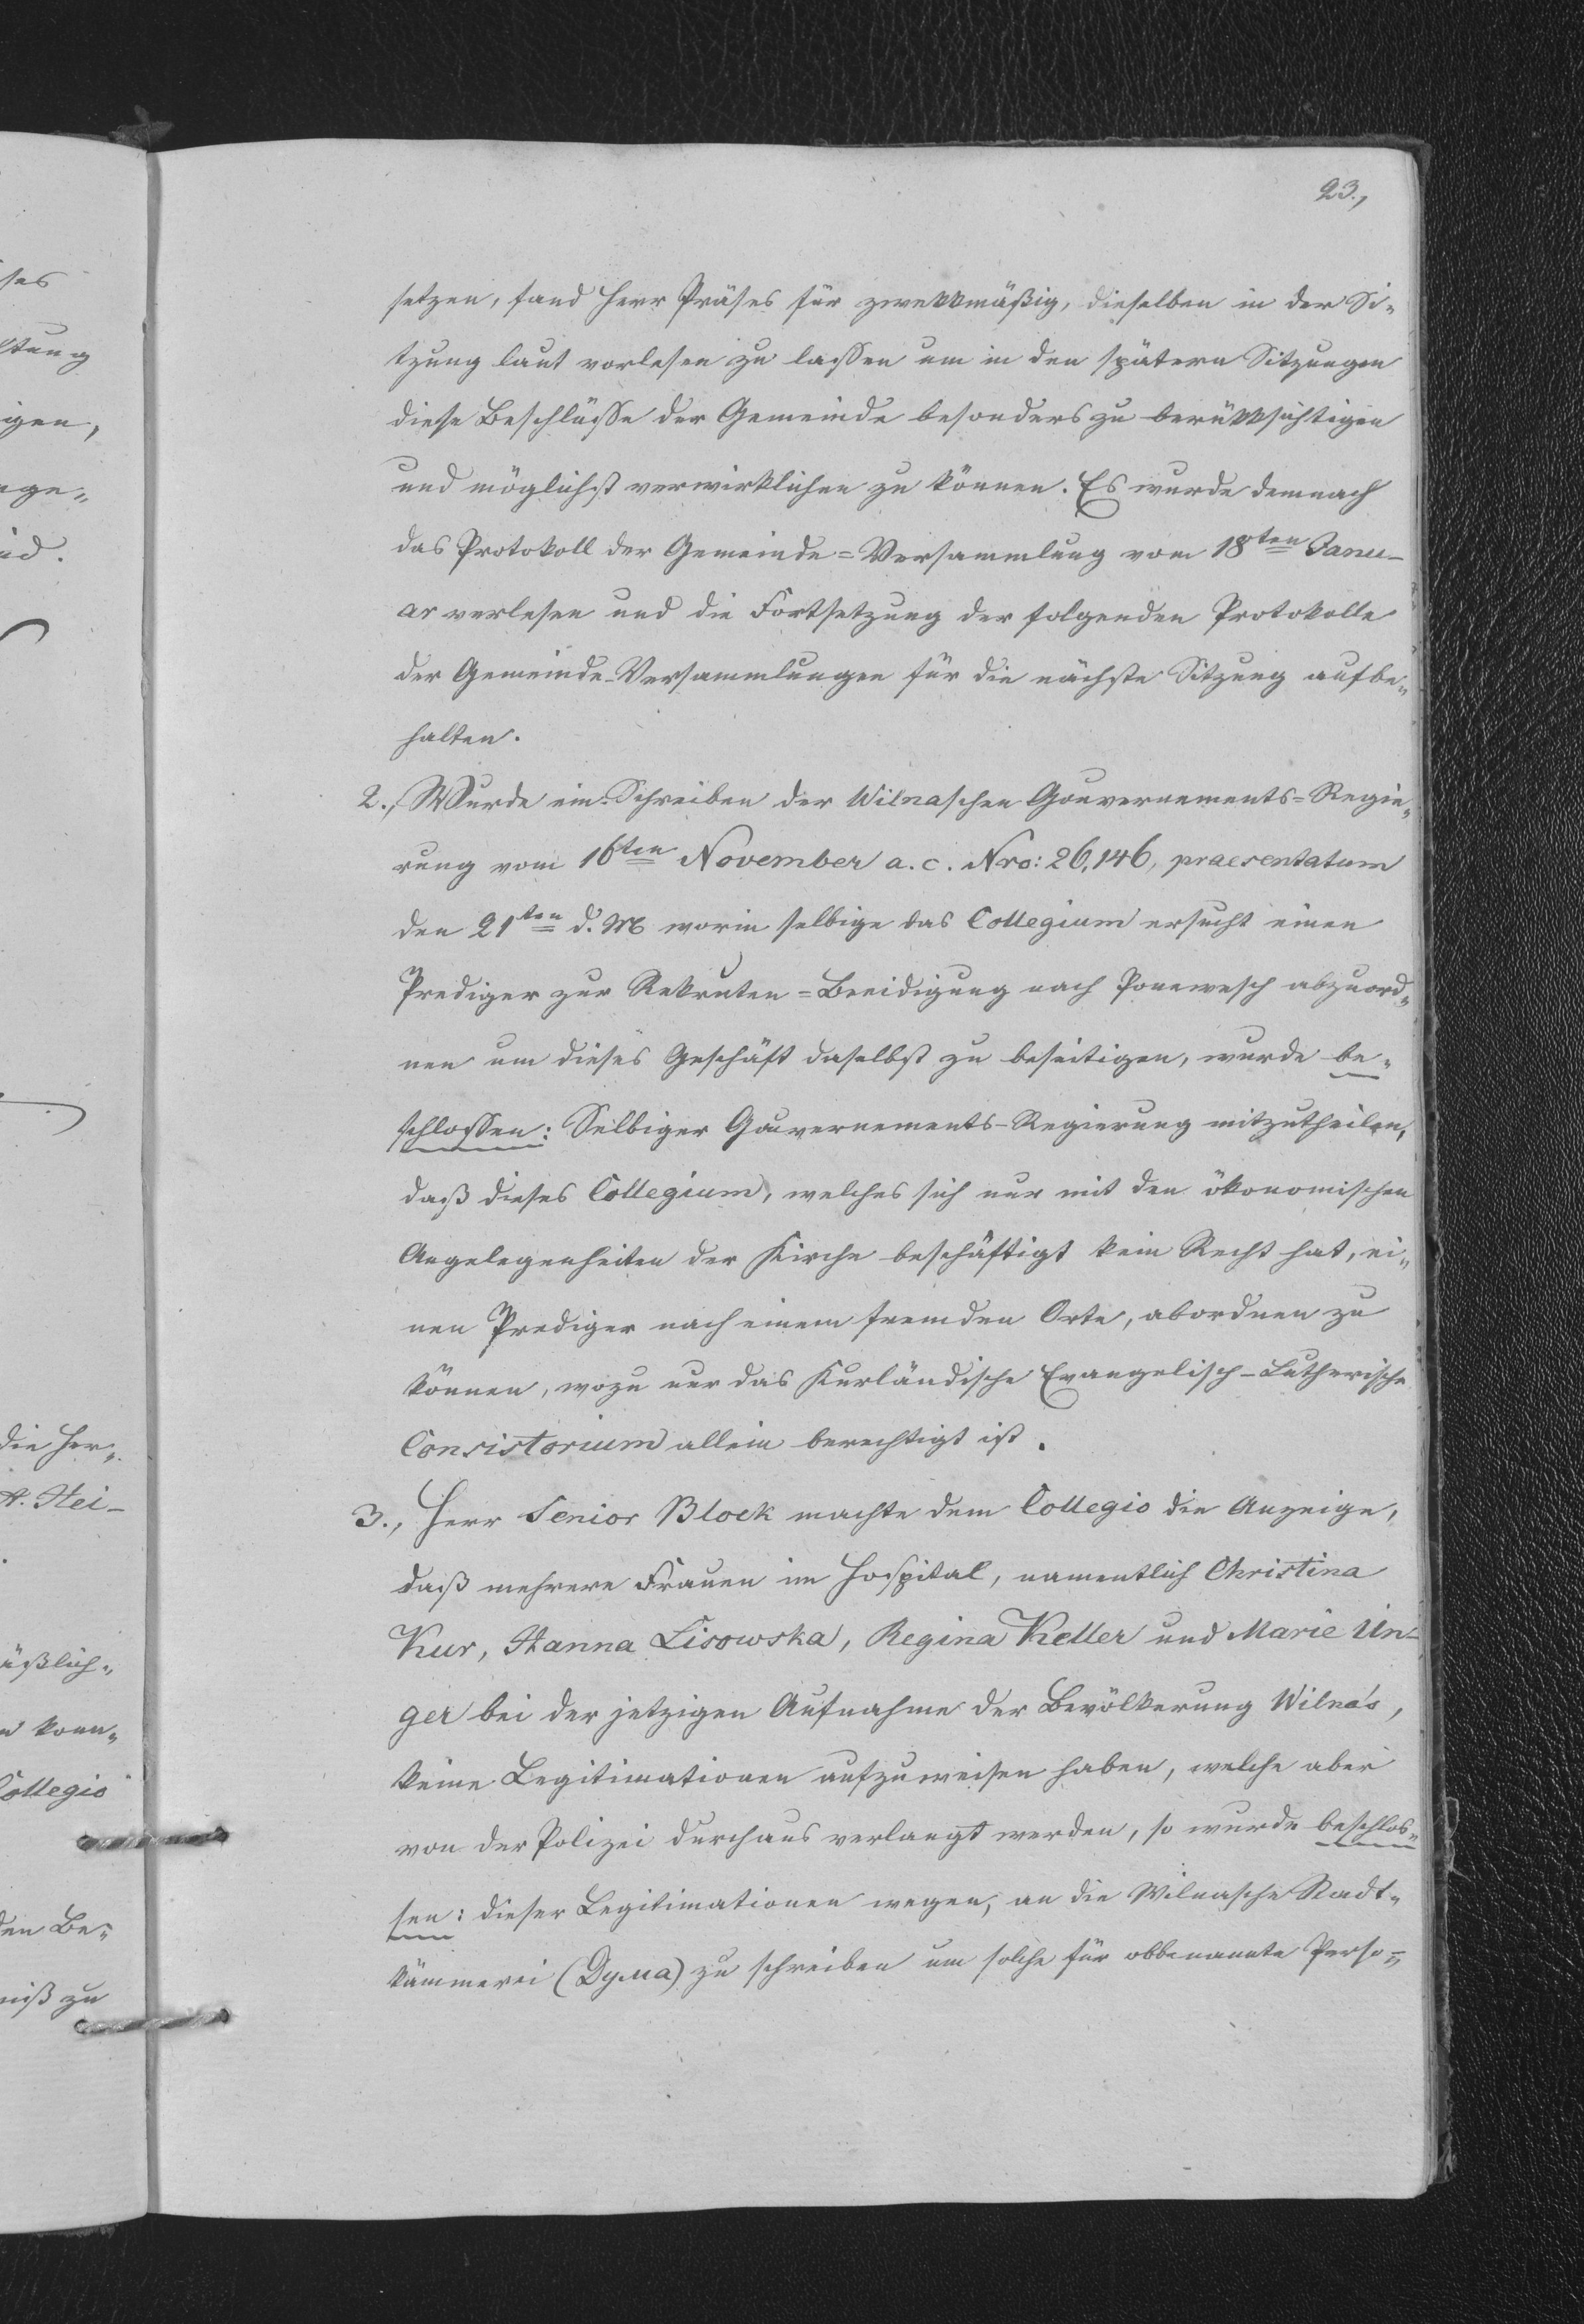 23.,
setzen, fand Herr Präses für zwekkmäßig, dieselben in der Si-
tzung laut vorlesen zu lassen um in den spätern Sitzungen
diese Beschlüsse der Gemeinde besonders zu berükksichtigen
und möglichst verwirklichen zu können. Es wurde demnach
das Protokoll der Gemeinde=Versammlung vom 18ten Janu-
ar verlesen und die Fortsetzung der folgenden Protokolle
der Gemeinde-Versammlungen für die nächste Sitzung aufbe-
halten.
2., Wurde ein Schreiben der Wilnaschen Gouvernements=Regie-
rung vom 16ten November a. c. Nro: 26,146, praesentatum
den 21ten d. M worin selbige das Collegium ersucht einen
Prediger zur Rekruten=Beeidigung nach Ponewesch abzuord-
nen um dieses Geschäft daselbst zu beseitigen, wurde be-
schlossen: Selbiger Gouvernements-Regierung mitzutheilen,
daß dieses Collegium, welches sich nur mit den ökonomischen
Angelegenheiten der Kirche beschäftigt kein Recht hat, ei-
nen Prediger nach einem fremden Orte, abordnen zu
können, wozu nur das Kurländische Evangelisch-Lutherische
Consistorium allein berechtigt ist.
3., Herr Senior Block machte dem Collegio die Anzeige,
daß mehrere Frauen im Hospital, namentlich Christina
Kur, Hanna Lisowska, Regina Keller und Marie Un-
ger bei der jetzigen Aufnahme der Bevölkerung Wilna's,
keine Legitimationen aufzuweisen haben, welche aber
von der Polizei durchaus verlangt werden, so wurde beschlos-
sen: dieser Legitimationen wegen, an die Wilnasche Stadt-
kämmerei (Дума) zu schreiben um solche für obbenannte Perso=